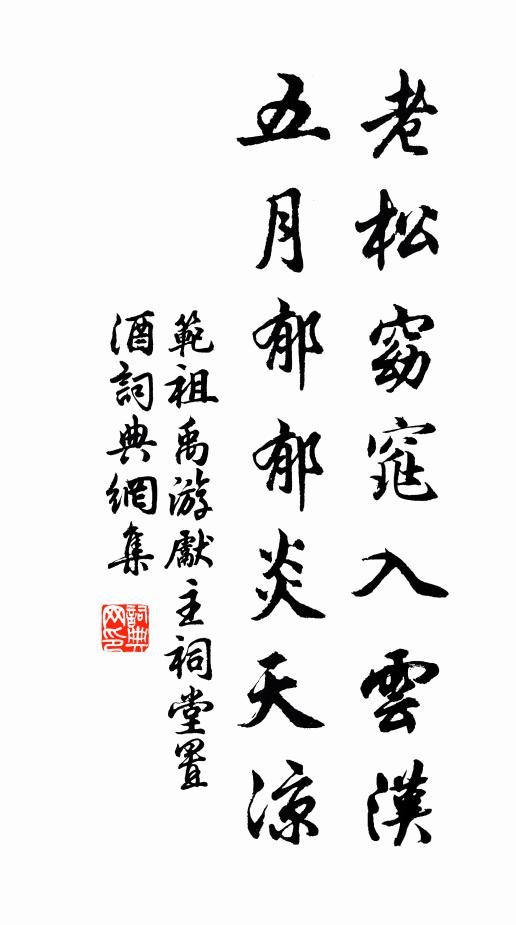 老松窈窕入雲漢
五月郁郁炎天涼
範祖禹游獻主祠堂置
酒詞典網集
詞典網印